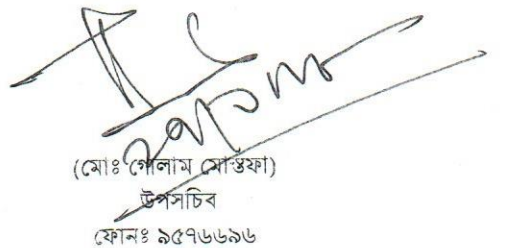 (মোঃ গোলাম মোস্তফা)
উপসচিব
ফোনঃ ৯৫৭৬৬৯৬